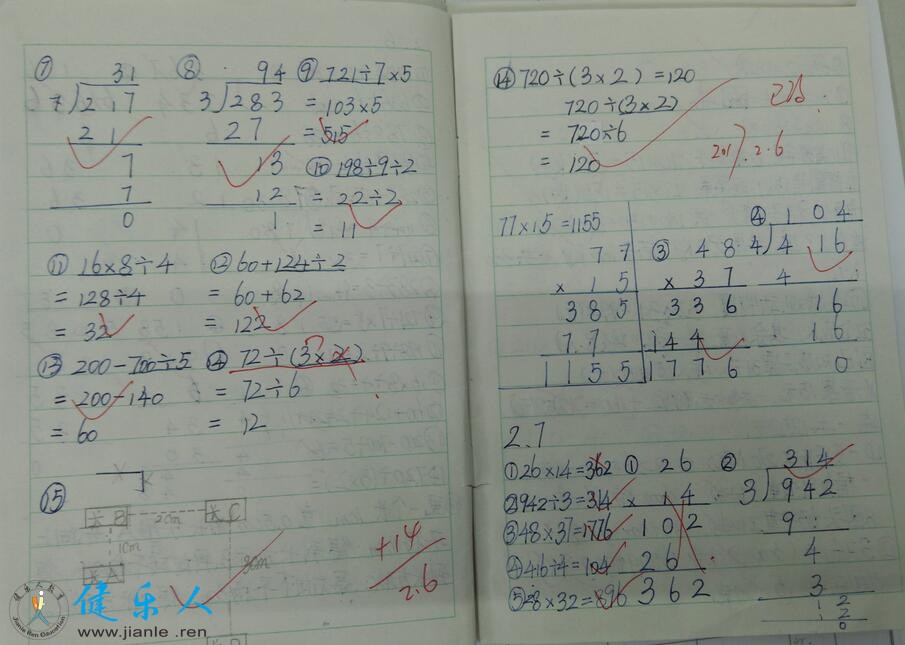 ⑦ 31
7)217
21
7
7
0
⑧ 94
3)283
27
13
12
1
⑨ 721÷7×5
=103×5
=515
⑩ 198÷9÷2
=22÷2
=11
⑪ 16×8÷4
=128÷4
=32
⑫ 60+124÷2
=60+62
=122
⑬ 200-700÷5
=200-140
=60
⑭ 72÷(3×2)
=72÷6
=12
⑮
2cm
1cm
+14
2.6
健乐人
www.jianle.ren
⑭ 720÷(3×2)=120
720÷(3×2)
=720÷6
=120
2.6
77×15=1155
77
×15
385
77
1155
③ 48
×37
336
144
1776
④ 104
4)416
4
16
16
0
2.7
①26×14=362
②942÷3=314
③48×37=1776
④416÷4=104
⑤28×32=896
① 26
×14
102
26
362
② 314
3)942
9
4
3
12
12
0